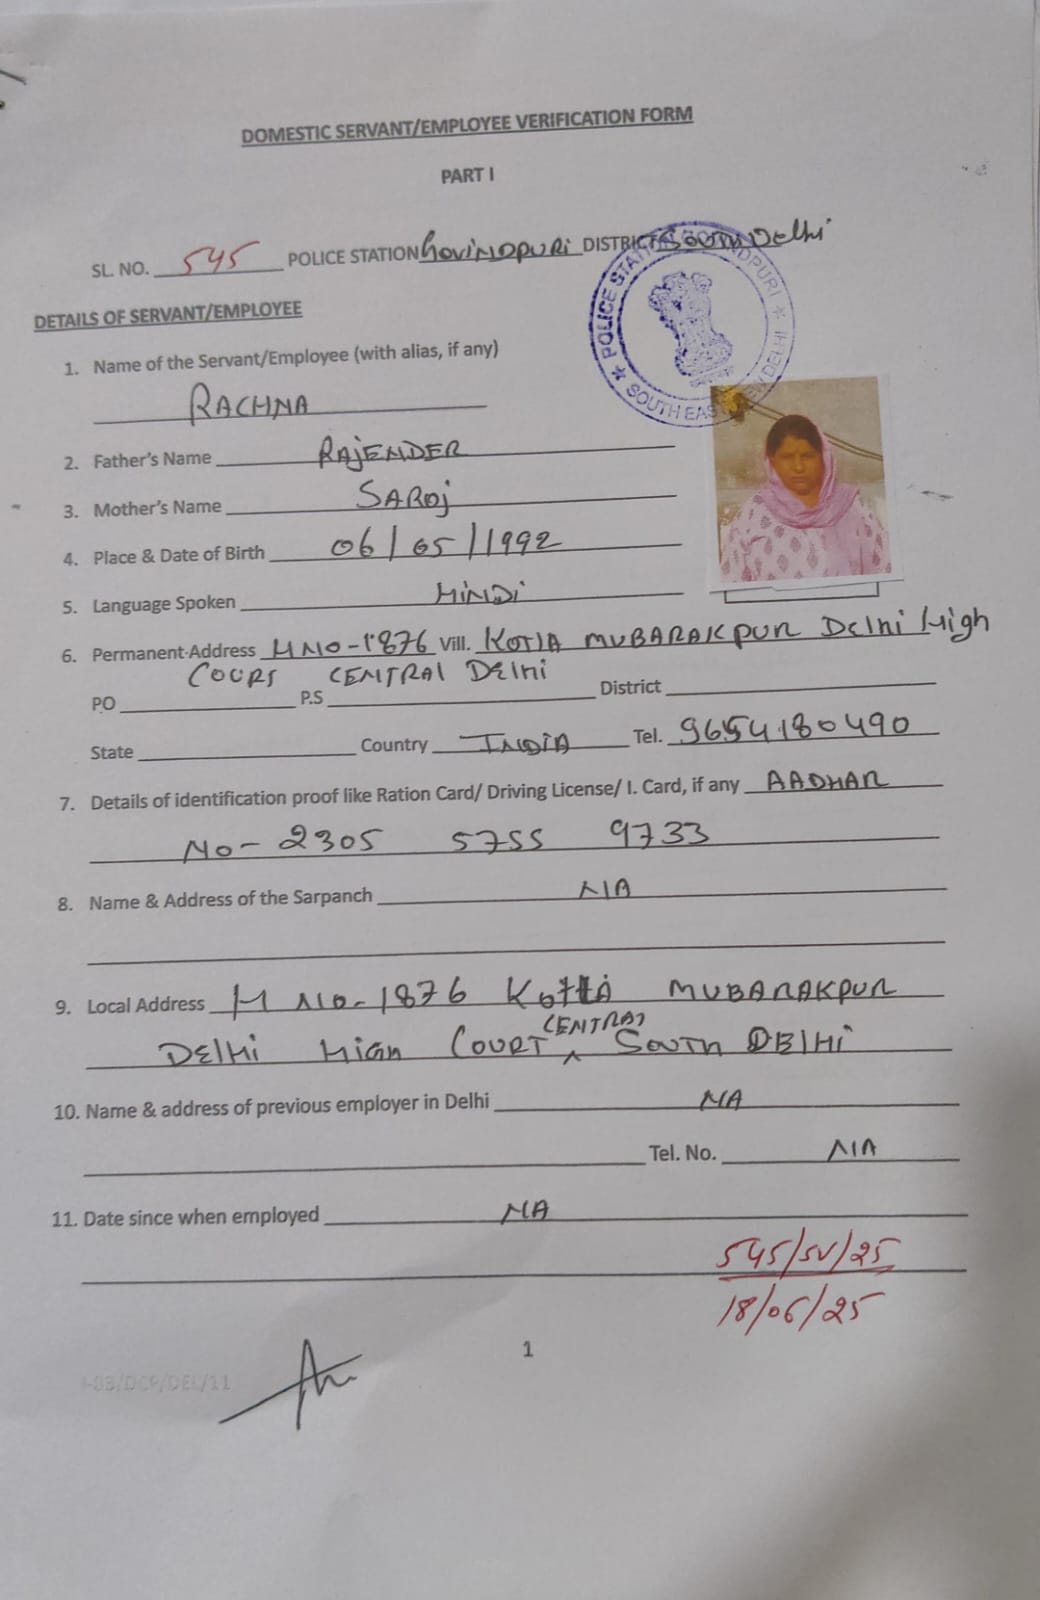 DOMESTIC SERVANT/EMPLOYEE VERIFICATION FORM
PART I
SL. NO. 545 POLICE STATION GOVINDPURI DISTRICT SOUTH Delhi
POLICE STATION GOVINDPURI
SOUTH EAST NEW DELHI
DETAILS OF SERVANT/EMPLOYEE
1. Name of the Servant/Employee (with alias, if any)
RACHNA
2. Father's Name RAJENDER
3. Mother's Name SAROJ
4. Place & Date of Birth 06/05/1992
5. Language Spoken HINDI
6. Permanent Address H NO-1876 Vill. KOTLA MUBARAKPUR Delhi High
COURT CENTRAL Delhi
PO P.S District
State Country INDIA Tel. 9654180490
7. Details of identification proof like Ration Card/ Driving License/ I. Card, if any AADHAR
NO- 2305 5755 9733
8. Name & Address of the Sarpanch NA
9. Local Address H NO-1876 KOTLA MUBARAKPUR
CENTRAL
DELHI HIGH COURT ^ SOUTH DELHI
10. Name & address of previous employer in Delhi NA
Tel. No. NA
11. Date since when employed NA
545/SV/25
18/06/25
1
/DCP/DEL/11